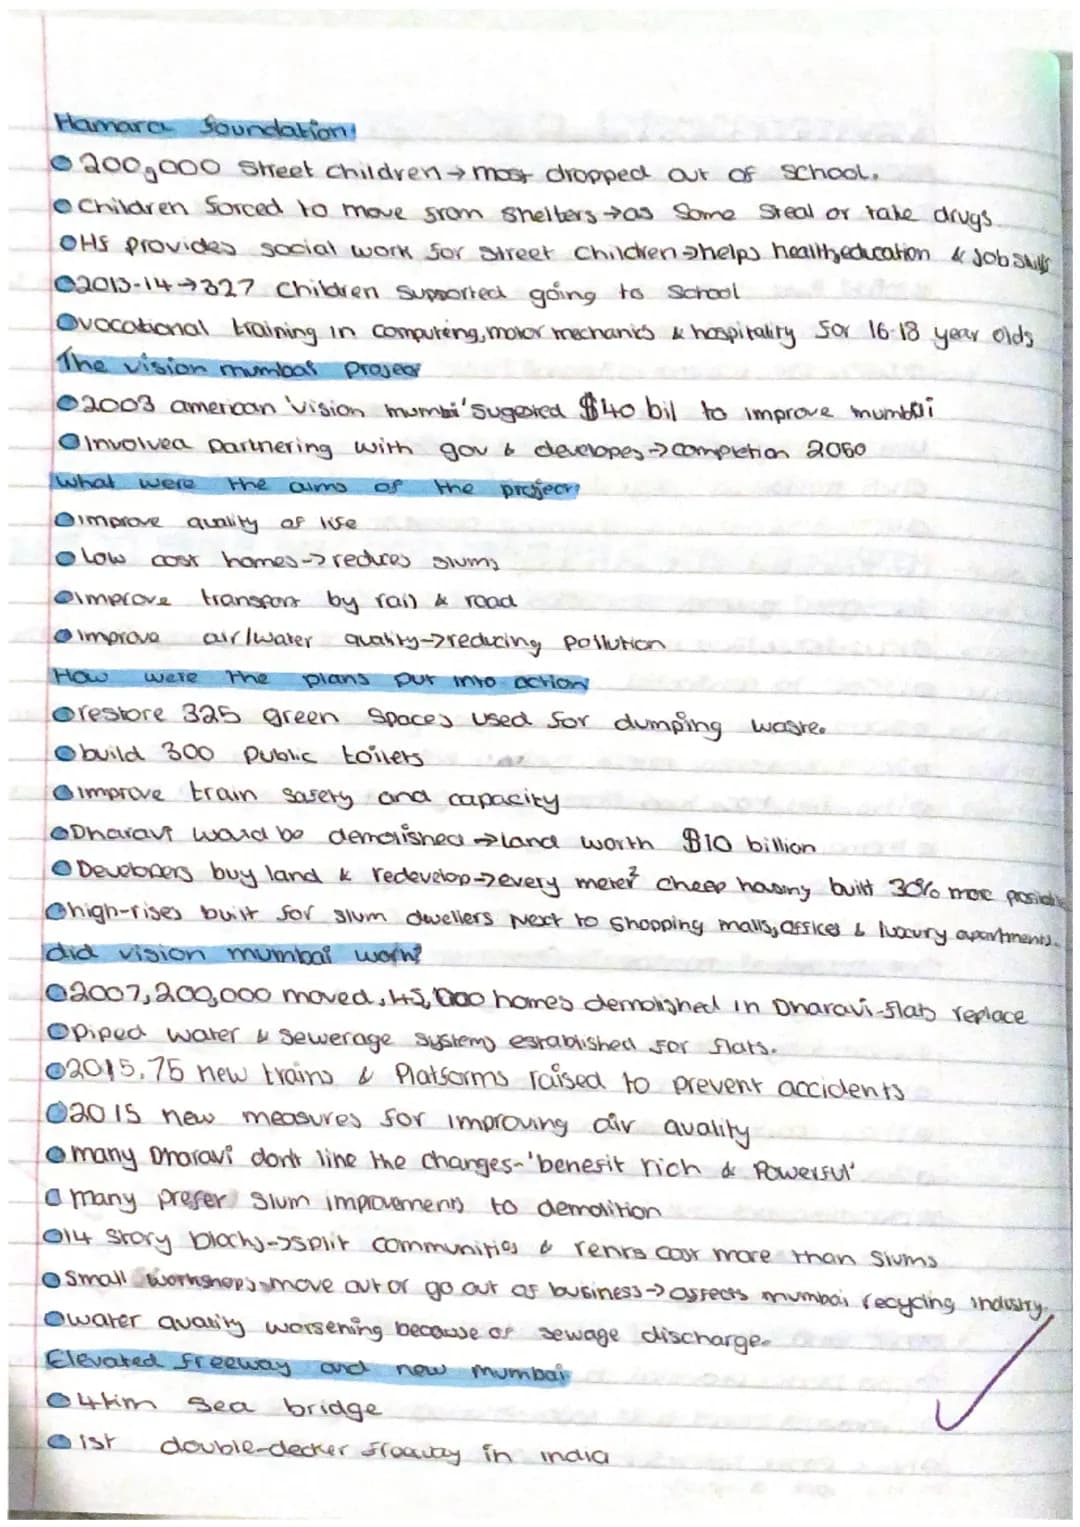 Hamara foundation:
200,000 Street children → most dropped out of school.
Children forced to move from shelters → as some steal or take drugs.
HF provides social work for street children → helps health, education & job skills
2013-14 → 327 children supported going to school
vocational training in computing, motor mechanics & hospitality for 16-18 year olds
The vision mumbai project
2003 american 'vision mumbi' sugested $40 bil to improve mumbai
Involved partnering with gov & developes → completion 2050
What were the aims of the project?
improve quality of life
low cost homes → reduces slums
improve transport by rail & road
improve air/water quality → reducing pollution
How were the plans put into action
restore 325 green spaces used for dumping waste.
build 300 public toilets
improve train safety and capacity
Dharavi would be demolished → land worth $10 billion
Developers buy land & redevelop → every meter² cheep housing built 30% more
high-rises built for slum dwellers next to shopping malls, offices & luxury apartments.
did vision mumbai work?
2007, 200,000 moved, 45,000 homes demolished in Dharavi-flats replace
piped water & sewerage systems established for flats.
2015, 75 new trains & Platforms raised to prevent accidents
2015 new measures for improving air quality
many Dharavi dont like the changes-'benefit rich & Powerful'
many prefer slum improvements to demolition
14 story blocks → split communities & rents cost more than slums
small workshops move out or go out of business → affects mumbai recycling industry.
water quality worsening because of sewage discharge.
Elevated freeway and new mumbai
4km sea bridge
1st double-decker freeway in india